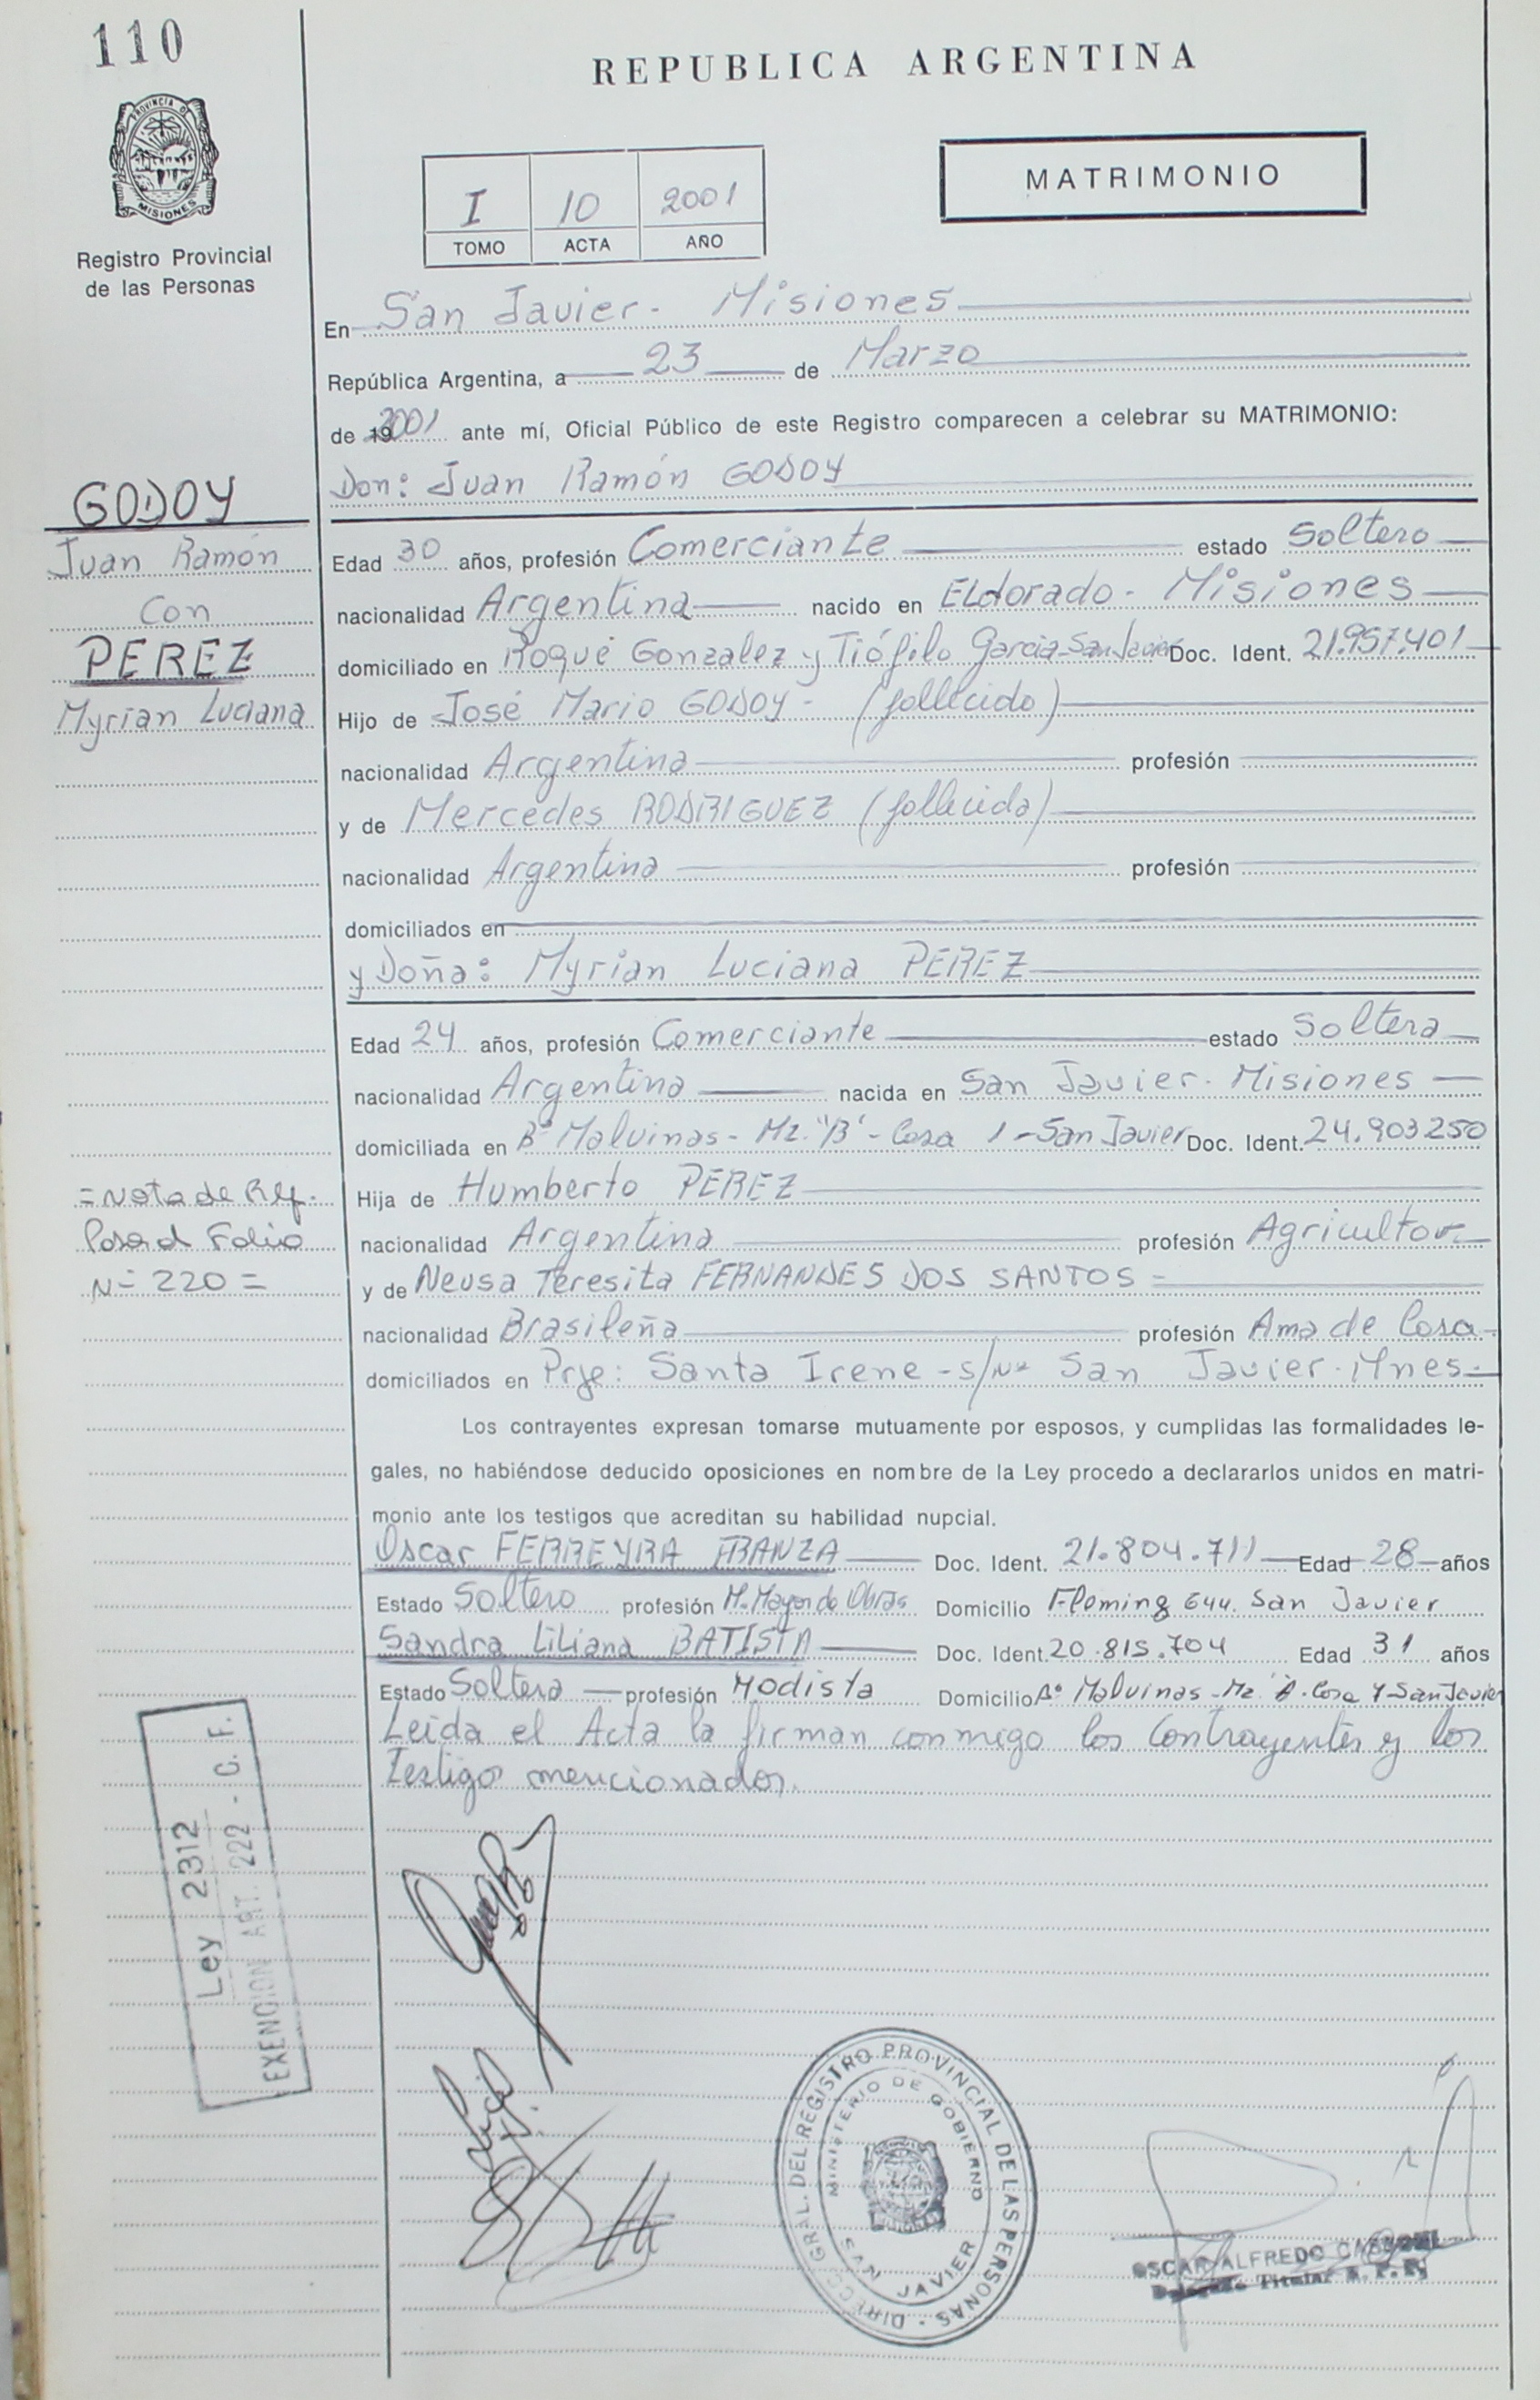 110
REPUBLICA ARGENTINA
PROVINCIA DE MISIONES
Registro Provincial
de las Personas
I 10 2001
TOMO ACTA AÑO
MATRIMONIO
En San Javier - Misiones
República Argentina, a 23 de Marzo
de 2001 ante mí, Oficial Público de este Registro comparecen a celebrar su MATRIMONIO:
Don: Juan Ramón GODOY
GODOY
Juan Ramón
Con
PEREZ
Myrian Luciana
Edad 30 años, profesión Comerciante estado Soltero
nacionalidad Argentina nacido en ELdorado - Misiones
domiciliado en Roque Gonzalez y Tiófilo Garcia-San Javier Doc. Ident. 21.957.401
Hijo de José Mario GODOY - (fallecido)
nacionalidad Argentina profesión
y de Mercedes RODRIGUEZ (fallecida)
nacionalidad Argentina profesión
domiciliados en
y Doña: Myrian Luciana PEREZ
Edad 24 años, profesión Comerciante estado Soltera
nacionalidad Argentina nacida en San Javier - Misiones
domiciliada en B° Malvinas - Mz. "B" - Casa 1 - San Javier Doc. Ident. 24.903250
Hija de Humberto PEREZ
nacionalidad Argentina profesión Agricultor
y de Neusa Teresita FERNANDES DOS SANTOS =
nacionalidad Brasileña profesión Ama de Casa
domiciliados en Prje: Santa Irene - s/Nº San Javier - Mnes
= Nota de Ref.
Pasa al Folio
Nº 220 =
Los contrayentes expresan tomarse mutuamente por esposos, y cumplidas las formalidades le-
gales, no habiéndose deducido oposiciones en nombre de la Ley procedo a declararlos unidos en matri-
monio ante los testigos que acreditan su habilidad nupcial.
Oscar FERREYRA FRANZA Doc. Ident. 21.804.711 Edad 28 años
Estado Soltero profesión M. Mayor de Obras Domicilio Fleming 644. San Javier
Sandra Liliana BATISTA Doc. Ident. 20.815.704 Edad 31 años
Estado Soltera profesión Modista Domicilio B° Malvinas - Mz. "A" - Casa 7 - San Javier
Leida el Acta la firman conmigo los Contrayentes y los
testigos mencionados.
Ley 2312
EXENCION ART. 222 - C. F.
DIRECC. GRAL. DEL REGISTRO PROVINCIAL DE LAS PERSONAS
MINISTERIO DE GOBIERNO
SAN JAVIER
OSCAR ALFREDO
Delegado Titular R. P. P.